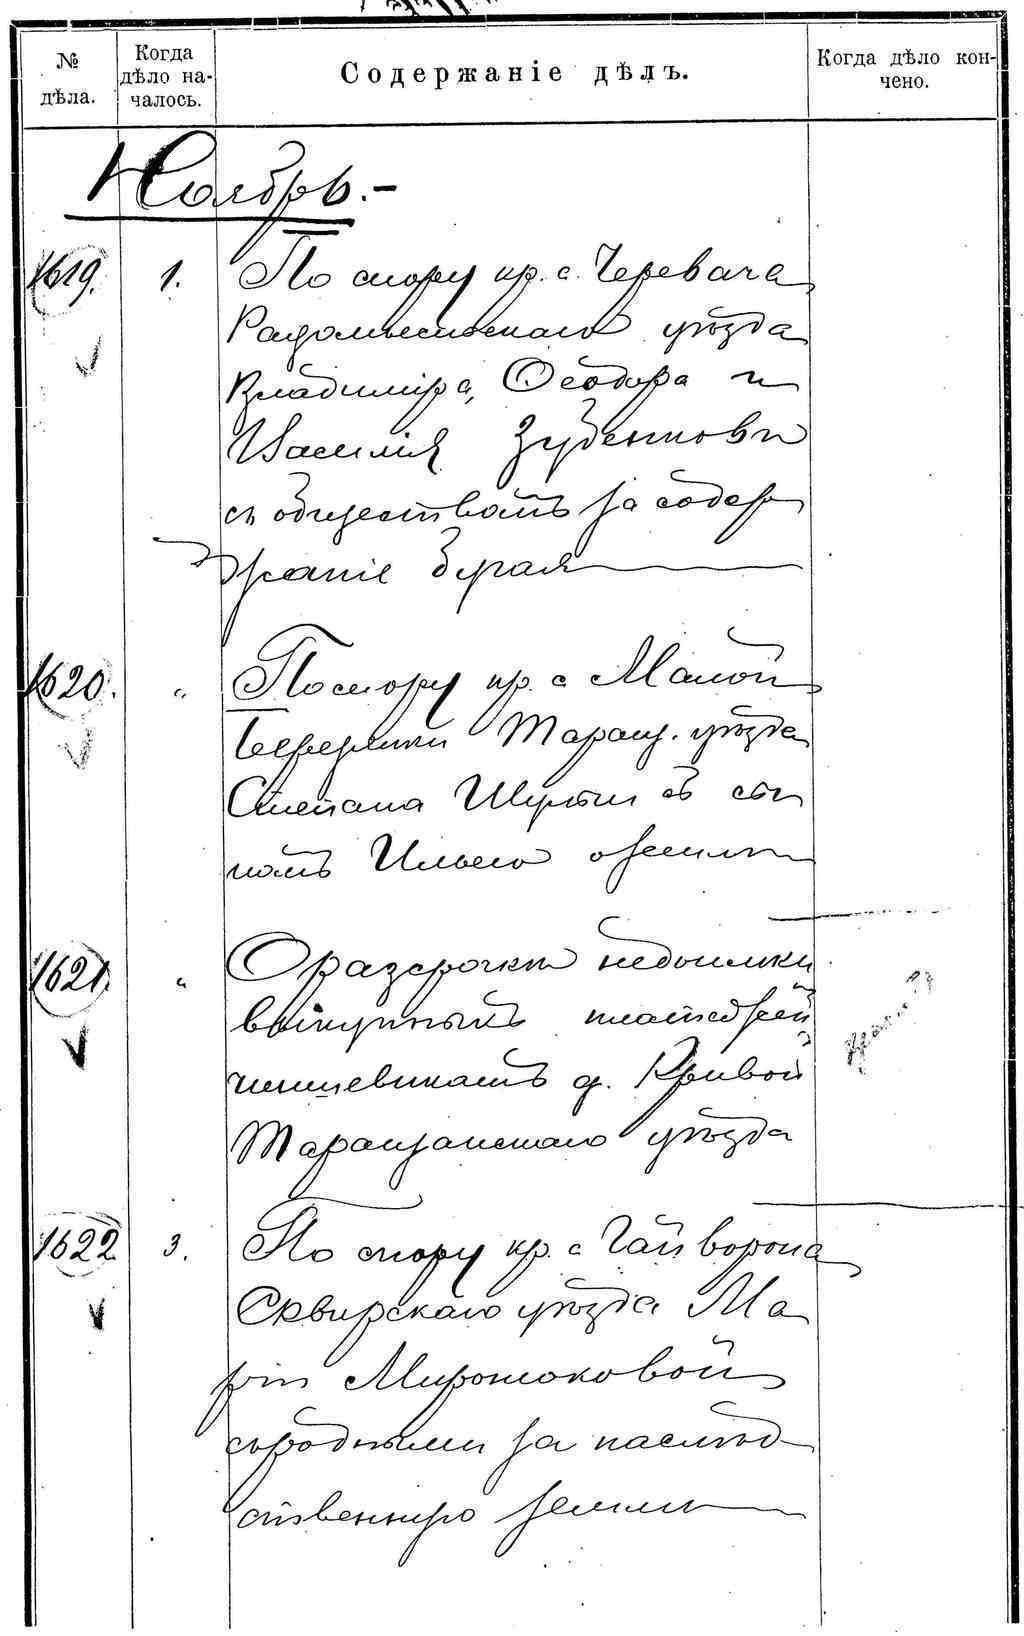 № дѣла.
Когда дѣло на-
чалось.
Содержаніе дѣлъ.
Когда дѣло кон-
чено.
Ноябрь.-
1619. 1. По спору кр. с. Черевача
Радомысльскаго уѣзда
Владиміра, Ѳеодора и
Василія Зубенковъ
съ обществомъ за содер
жаніе бугая
1620. " По спору кр. с Малой
Березянки Таращ. уѣзда
Степана Шульги съ сы
номъ Ильею о земли
1621. " О разсрочкѣ недоимки
выкупныхъ платежей
чиншевикамъ д. Кривой
Таращанскаго уѣзда
1622 3. По спору кр. с Гайворона
Сквирскаго уѣзда Ма
ріи
съ родными за наслѣд
ственную землю